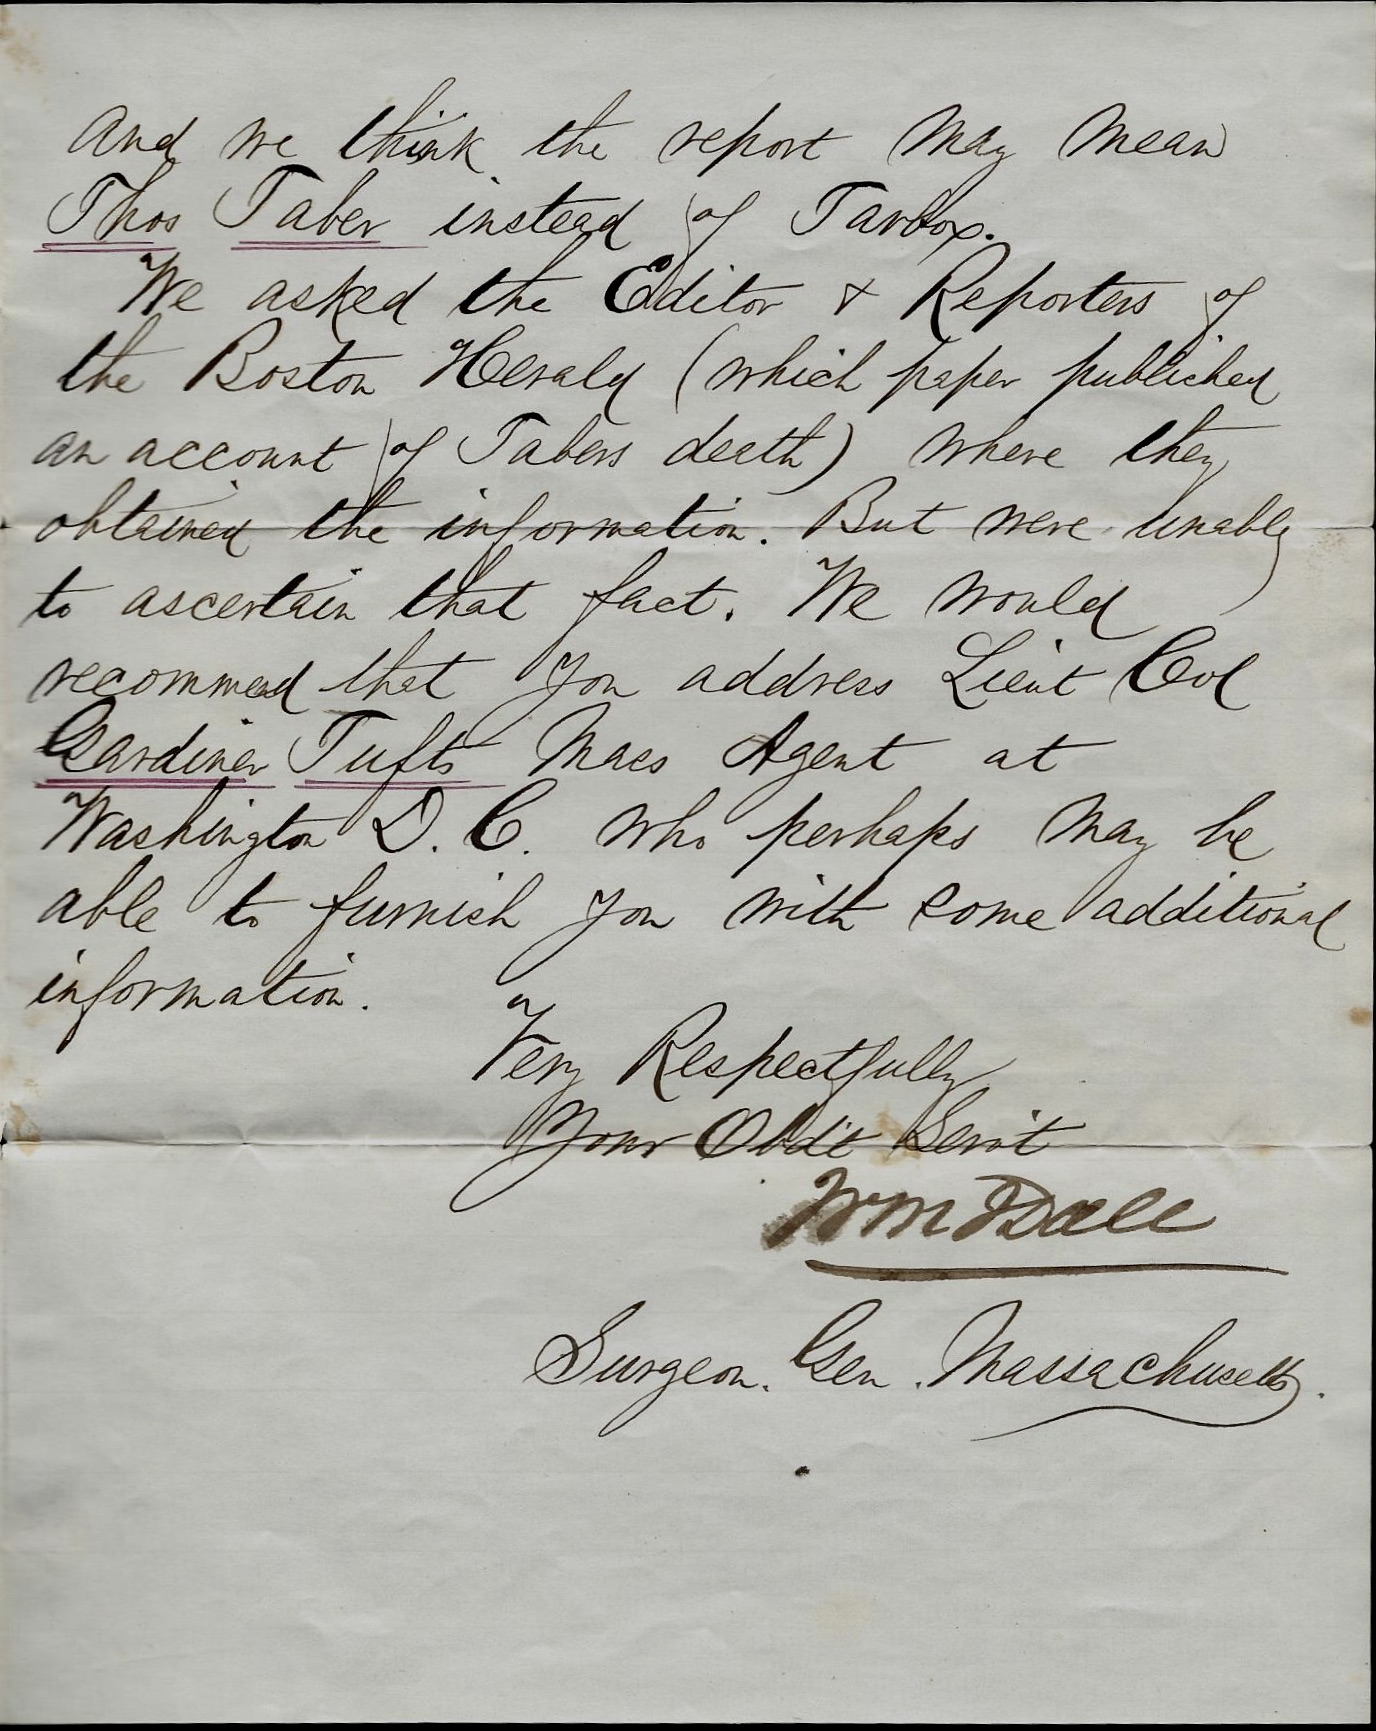 And we think the report may mean
Thos Taber instead of Tarbox.
We asked the Editor & Reporters of
the Boston Herald (which paper published
an account of Tabers death) where they
obtained the information. But were unable
to ascertain that fact. We would
recommend that you address Lieut Col
Gardiner Tufts Mass Agent at
Washington D.C. who perhaps may be
able to furnish you with some additional
information.
Very Respectfully
Your Obdt Servt
Wm J Dale
Surgeon. Gen. Massachusetts.